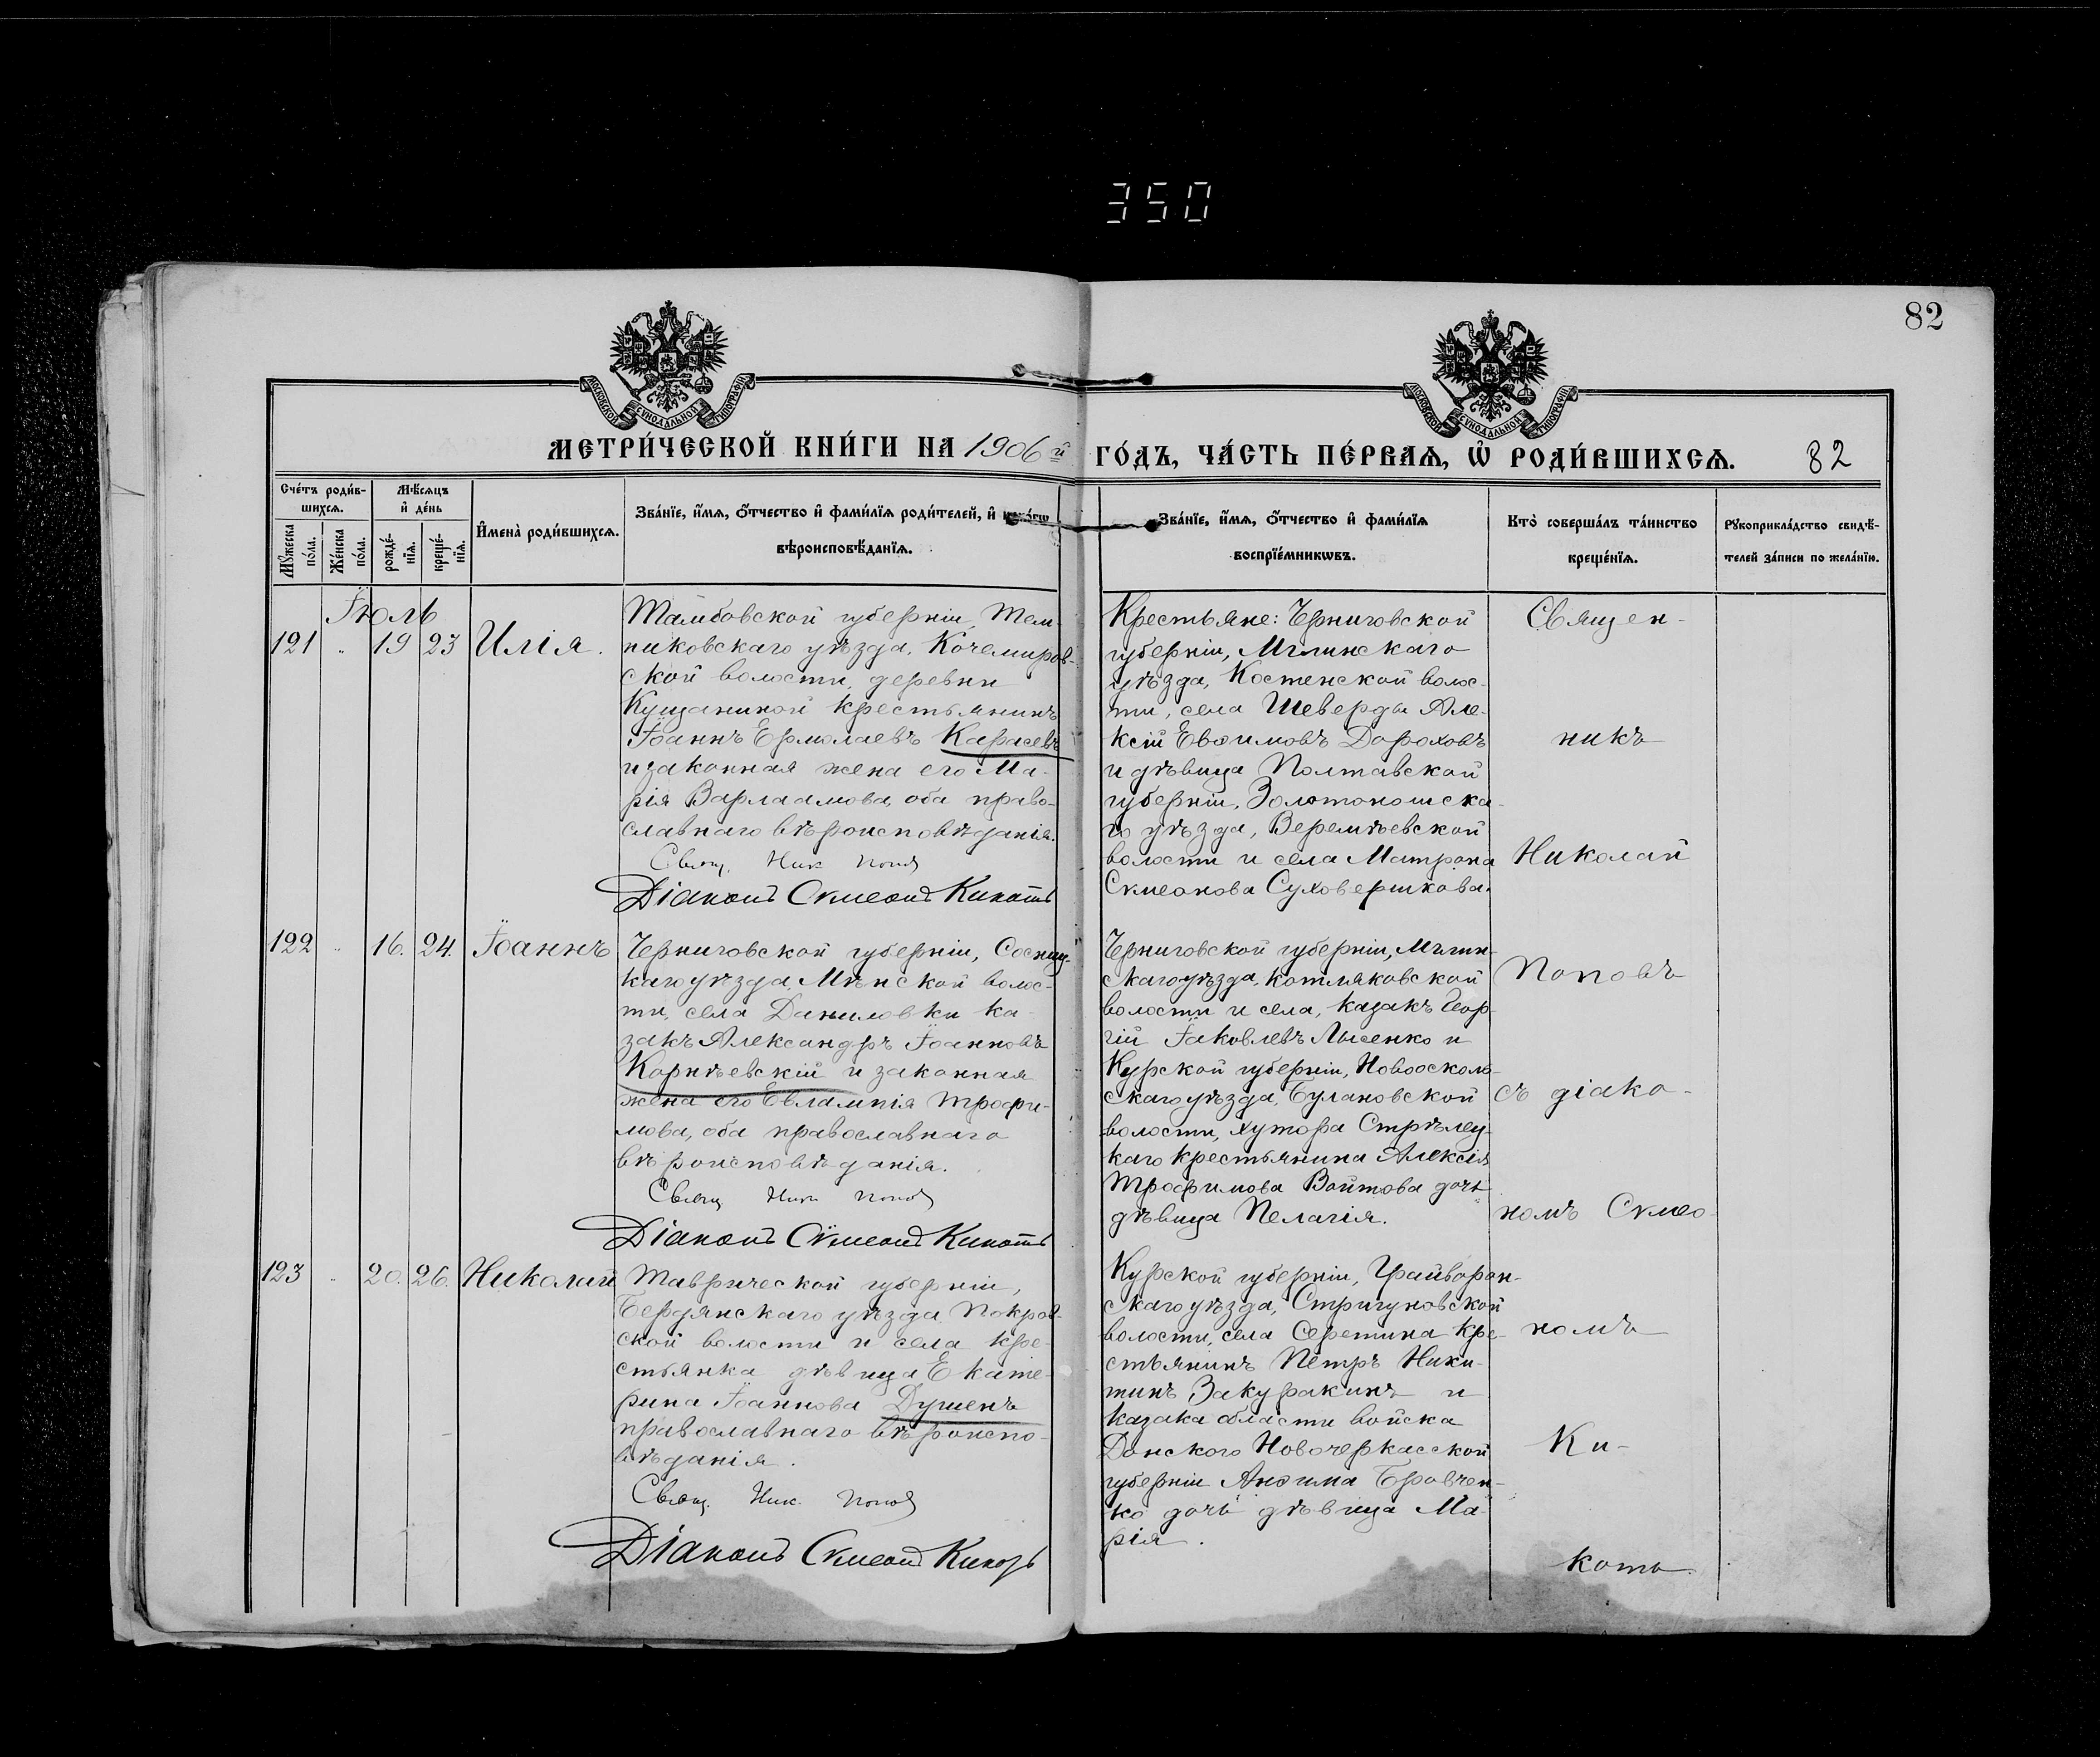 350
82
МОСКОВСКОЙ СѴНОДАЛЬНОЙ ТИПОГРАФІИ
МОСКОВСКОЙ СѴНОДАЛЬНОЙ ТИПОГРАФІИ
МЕТРИ́ЧЕСКОЙ КНИ́ГИ НА 1906 й ГО́ДЪ, ЧА́СТЬ ПЕ́РВАѦ, Ѡ РОДИ́ВШИХСѦ. 82
Сче́тъ роди́в-
шихсѧ.
Мꙋ́жеска по́ла.
Же́нска по́ла.
Мѣ́сѧцъ
и҆ де́нь
рожде́-
нїѧ.
креще́-
нїѧ.
И҆мена̀ роди́вшихсѧ.
Зва́нїе, и҆́мѧ, ѻ҆́тчество и҆ фами́лїѧ роди́телей, и҆
вѣроисповѣ́данїѧ.
Зва́нїе, и҆́мѧ, ѻ҆́тчество и҆ фами́лїѧ
воспрїе́мникѡвъ.
Кто̀ соверша́лъ та́инство
креще́нїѧ.
Рꙋкоприкла́дство свидѣ́-
телей за́писи по жела́нїю.
Іюль
121 " 19 23 Илія.
Тамбовской губерніи, Тем-
никовскаго уѣзда, Кочемиров-
ской волости, деревни
Кущаниной крестьянинъ
Іоаннъ Ермолаевъ Карасевъ
и законная жена его Ма-
рія Варлаамова, оба право-
славнаго вѣроисповѣданія.
Свящ. Ник Попов
Діаконъ Сѵмеонъ Кикоть
Крестьяне: Черниговской
губерніи, Мглинскаго
уѣзда, Костенской волос-
ти, села Шеверды Але-
ксій Евѳимовъ Дороховъ
и дѣвица Полтавской
губерніи, Золотоношска-
го уѣзда, Веремѣевской
волости и села Матрона
Сѵмеонова Суховершкова.
122 " 16. 24. Іоаннъ
Черниговской губерніи, Сосниц-
каго уѣзда, Мѣнской волос-
ти, села Даниловки ка-
закъ Александръ Іоанновъ
Корнѣевскій и законная
жена его Евлампія Трофи-
мова, оба православнаго
вѣроисповѣданія.
Свящ Ник Попов
Діаконъ Сѵмеонъ Кикоть
Черниговской губерніи, Мглин-
скаго уѣзда, Котляковской
волости и села, казакъ Геор-
гій Іаковлевъ Лысенко и
Курской губерніи, Новоосколь-
скаго уѣзда, Булановской
волости, хутора Стрѣлец-
каго крестьянина Алексія
Трофимова Войтова дочь
дѣвица Пелагія.
123 " 20. 26. Николай
Таврической губерніи,
Бердянскаго уѣзда, Покров-
ской волости и села кре-
стьянка дѣвица Екате-
рина Іоаннова Душенъ
православнаго вѣроиспо-
вѣданія.
Свящ. Ник. Попов
Діаконъ Сѵмеонъ Кикоть
Курской губерніи, Грайворон-
скаго уѣзда, Стригуновской
волости, села Серетина кре-
стьянинъ Петръ Ники-
тинъ Закуракинъ и
казака области войска
Донского Новочеркасской
губерніи Анѳима Бровчен-
ко дочь дѣвица Ма-
рія.
Священ-
никъ
Николай
Поповъ
съ діако-
номъ Сѵмео-
номъ
Ки-
коть.